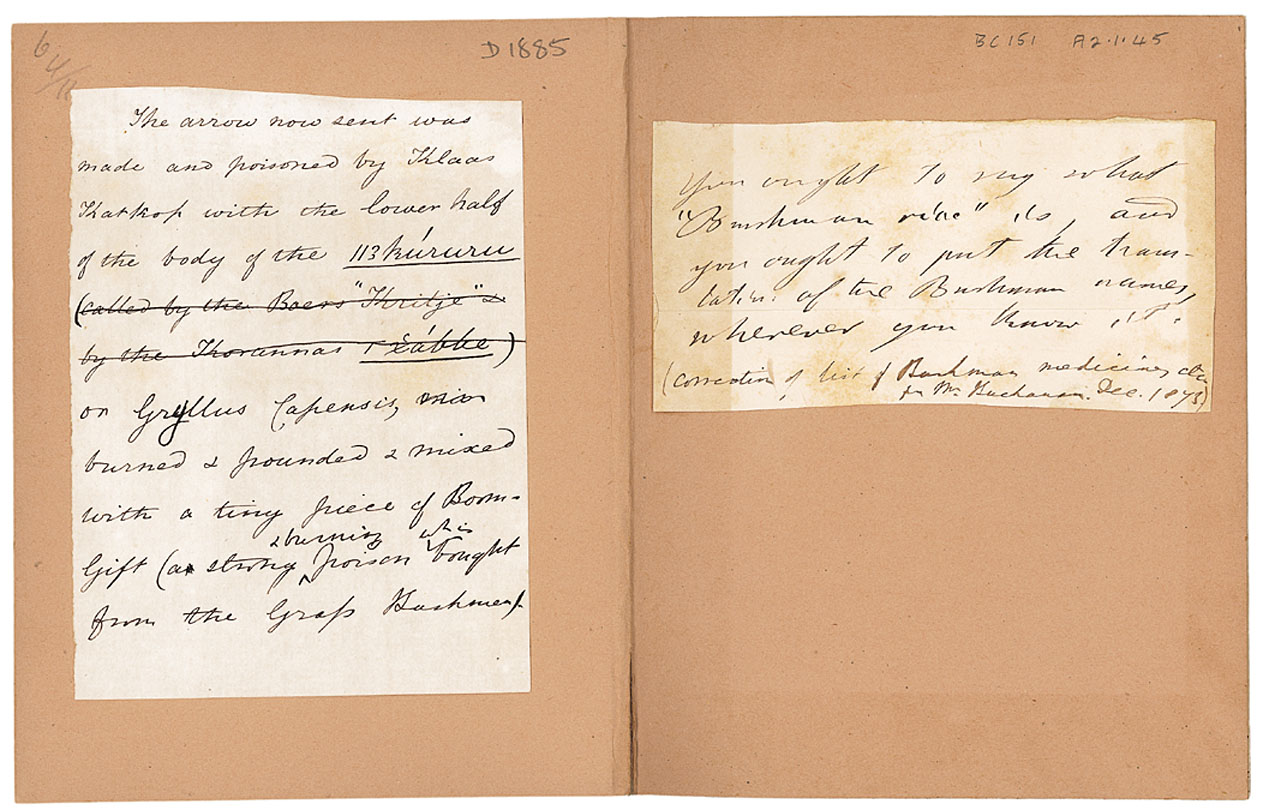 6
4/11
D1885
The arrow now sent was
made and poisoned by Klaas
Katkop with the lower half
of the body of the ǁ3kúruru
(called by the Boers "Kritje" &
by the Korannas
or Gryllus Capensis,
burned & pounded & mixed
with a tiny piece of Boom-
& burning wh is
Gift (a strong poison bought
from the Grass Bushmen).
BC 151 A2.1.45
You ought to say what
"Bushman rice" is, and
you ought to put the trans-
lation of the Bushman names,
wherever you know it.
(correction of list of Bushman medicines
for Mr Buchanan. Dec. 1873)